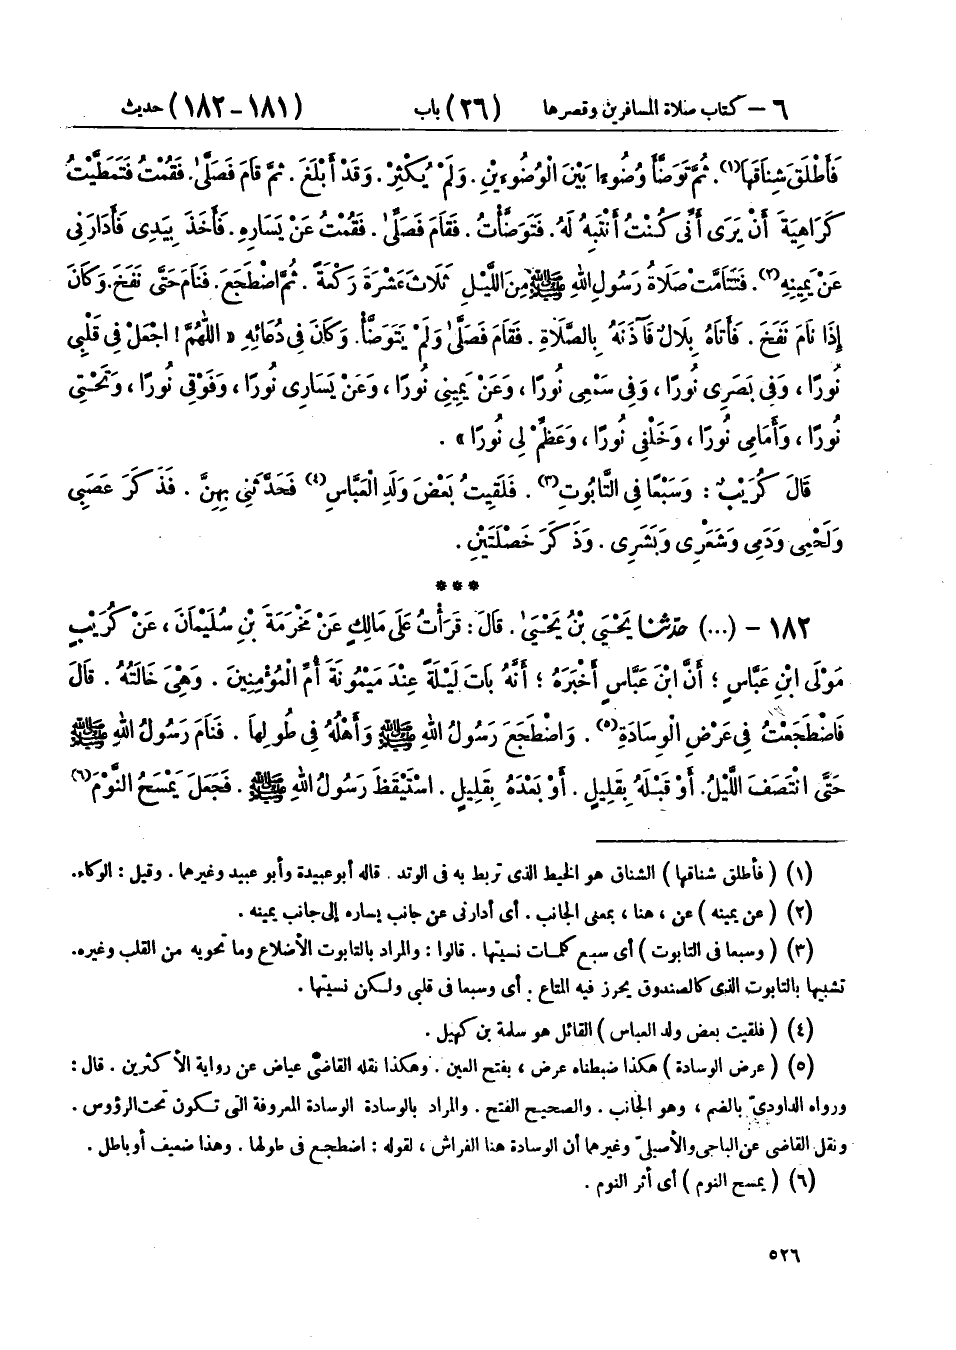 ٦ – كتاب صلاة المسافرين وقصرها (٢٦) باب (١٨١-١٨٢) حديث
فَأَطْلَقَ شِنَاقَهَا(١). ثُمَّ تَوَضَّأَ وُضُوءًا بَيْنَ الْوُضُوءَيْنِ. وَلَمْ يُكْثِرْ. وَقَدْ أَبْلَغَ. ثُمَّ قَامَ فَصَلَّىٰ. فَقُمْتُ فَتَمَطَّيْتُ
كَرَاهِيَةَ أَنْ يَرَى أَنِّى كُنْتُ أَنْتَبِهُ لَهُ. فَتَوَضَّأْتُ. فَقَامَ فَصَلَّىٰ. فَقُمْتُ عَنْ يَسَارِهِ. فَأَخَذَ بِيَدِى فَأَدَارَنِى
عَنْ يَمِينِهِ(٢). فَتَتَامَّتْ صَلَاةُ رَسُولِ اللهِ ﷺ مِنَ اللَّيْلِ ثَلَاثَ عَشْرَةَ رَكْعَةً. ثُمَّ اضْطَجَعَ. فَنَامَ حَتَّى نَفَخَ. وَكَانَ
إِذَا نَامَ نَفَخَ. فَأَتَاهُ بِلَالٌ فَآذَنَهُ بِالصَّلَاةِ. فَقَامَ فَصَلَّىٰ وَلَمْ يَتَوَضَّأْ. وَكَانَ فِى دُعَائِهِ «اللّٰهُمَّ! اجْعَلْ فِى قَلْبِى
نُورًا، وَفِى بَصَرِى نُورًا، وَفِى سَمْعِى نُورًا، وَعَنْ يَمِينِى نُورًا، وَعَنْ يَسَارِى نُورًا، وَفَوْقِى نُورًا، وَتَحْتِى
نُورًا، وَأَمَامِى نُورًا، وَخَلْفِى نُورًا، وَعَظِّمْ لِى نُورًا».
قَالَ كُرَيْبٌ: وَسَبْعًا فِى التَّابُوتِ(٣). فَلَقِيتُ بَعْضَ وَلَدِ الْعَبَّاسِ(٤) فَحَدَّثَنِى بِهِنَّ. فَذَكَرَ عَصَبِى
وَلَحْمِى وَدَمِى وَشَعْرِى وَبَشَرِى. وَذَكَرَ خَصْلَتَيْنِ.
***
١٨٢ – (...) حدثنا يَحْيَى بْنُ يَحْيَىٰ. قَالَ: قَرَأْتُ عَلَى مَالِكٍ عَنْ مَخْرَمَةَ بْنِ سُلَيْمَانَ، عَنْ كُرَيْبٍ
مَوْلَى ابْنِ عَبَّاسٍ؛ أَنَّ ابْنَ عَبَّاسٍ أَخْبَرَهُ؛ أَنَّهُ بَاتَ لَيْلَةً عِنْدَ مَيْمُونَةَ أُمِّ الْمُؤْمِنِينَ. وَهِىَ خَالَتُهُ. قَالَ
فَاضْطَجَعْتُ فِى عَرْضِ الْوِسَادَةِ(٥). وَاضْطَجَعَ رَسُولُ اللهِ ﷺ وَأَهْلُهُ فِى طُولِهَا. فَنَامَ رَسُولُ اللهِ ﷺ
حَتَّى انْتَصَفَ اللَّيْلُ. أَوْ قَبْلَهُ بِقَلِيلٍ. أَوْ بَعْدَهُ بِقَلِيلٍ. اسْتَيْقَظَ رَسُولُ اللهِ ﷺ. فَجَعَلَ يَمْسَحُ النَّوْمَ(٦)
(١) (فأطلق شناقها) الشناق هو الخيط الذى تربط به فى الوتد. قاله أبو عبيدة وأبو عبيد وغيرهما. وقيل: الوكاء.
(٢) (عن يمينه) عن، هنا، بمعنى الجانب. أى أدارنى عن جانب يساره إلى جانب يمينه.
(٣) (وسبعا فى التابوت) أى سبع كلمات نسيتها. قالوا: والمراد بالتابوت الأضلاع وما تحويه من القلب وغيره.
تشبيها بالتابوت الذى كالصندوق يحرز فيه المتاع. أى وسبعا فى قلبى ولكن نسيتها.
(٤) (فلقيت بعض ولد العباس) القائل هو سلمة بن كهيل.
(٥) (عرض الوسادة) هكذا ضبطناه عرض، بفتح العين. وهكذا نقله القاضى عياض عن رواية الأكثرين. قال:
ورواه الداودىّ بالضم، وهو الجانب. والصحيح الفتح. والمراد بالوسادة الوسادة المعروفة التى تكون تحت الرؤوس.
ونقل القاضى عن الباجى والأصيلىّ وغيرهما أن الوسادة هنا الفراش، لقوله: اضطجع فى طولها. وهذا ضعيف أو باطل.
(٦) (يمسح النوم) أى أثر النوم.
٥٢٦